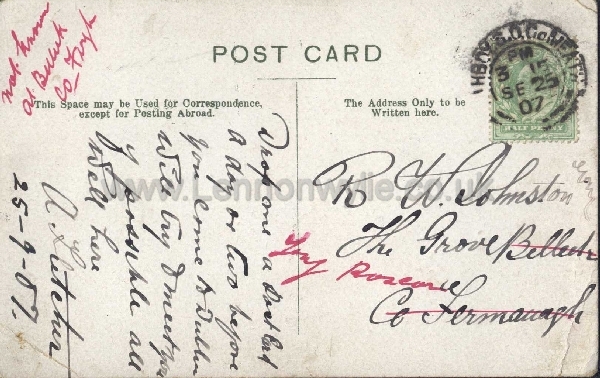 Not known
at Belleek
Co Fergh
POST CARD
This Space may be Used for Correspondence,
except for Posting Abroad.
The Address Only to be
Written here.
Drop me a Post Card
a day or two before
you come to Dublin
Will try & meet you
if possible all
well here
A Fletcher
25-9-07.
R W. Johnston
The Grove Belleek
Try Roscor
Co Fermanagh
S.O. Co. MEATH
PM
SE 25
07
HALF PENNY
www.Lennonwylie.co.uk